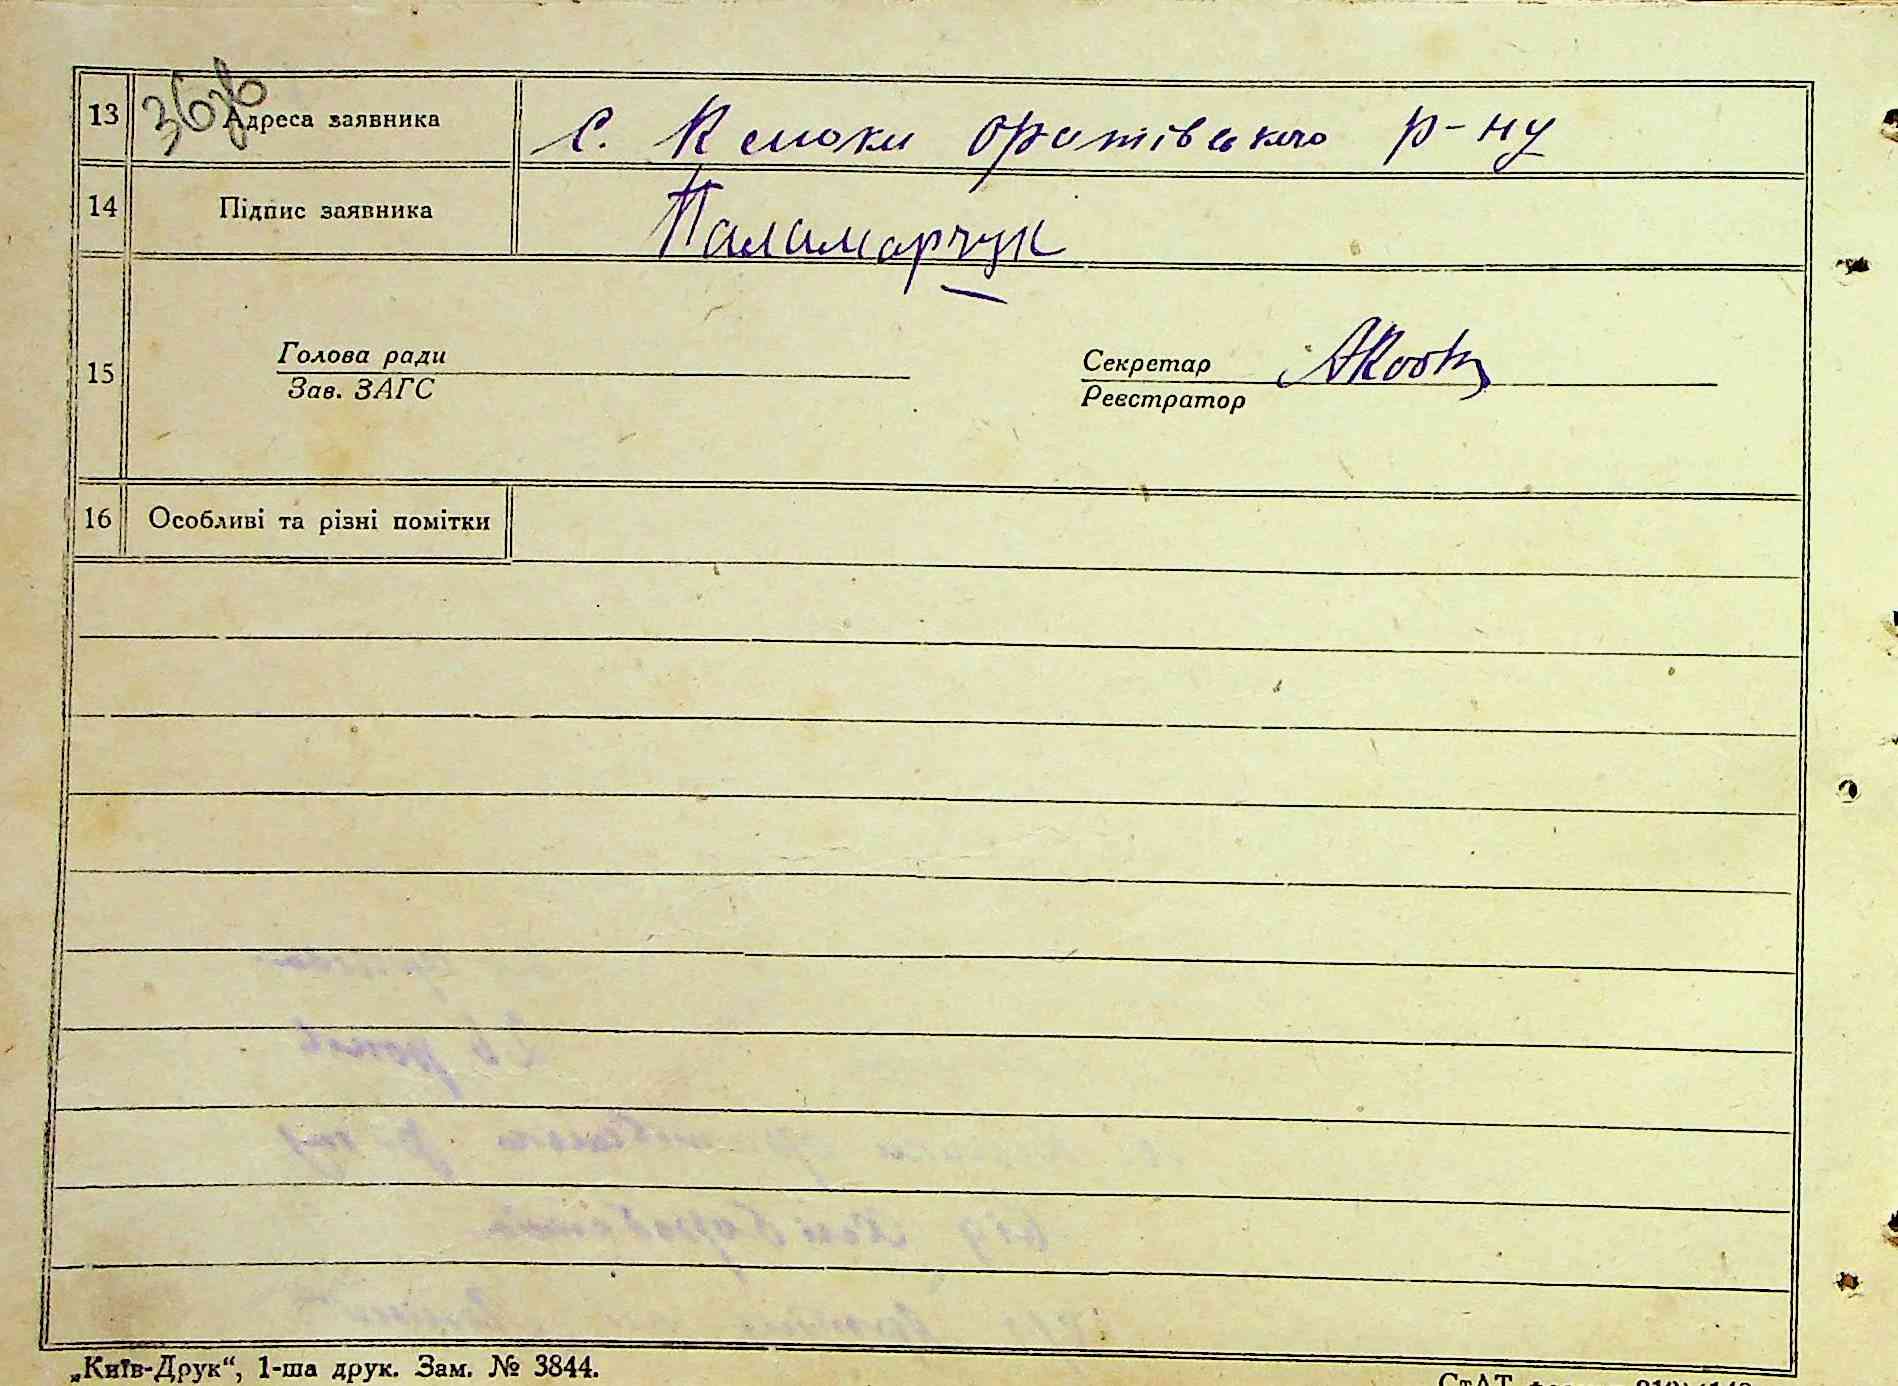 13 Адреса заявника с. Кошоки оратівського р-ну
14 Підпис заявника Паламарчук
15
Голова ради Секретар
Зав. ЗАГС Реєстратор
16 Особливі та різні помітки
„Київ-Друк“, 1-ша друк. Зам. № 3844.